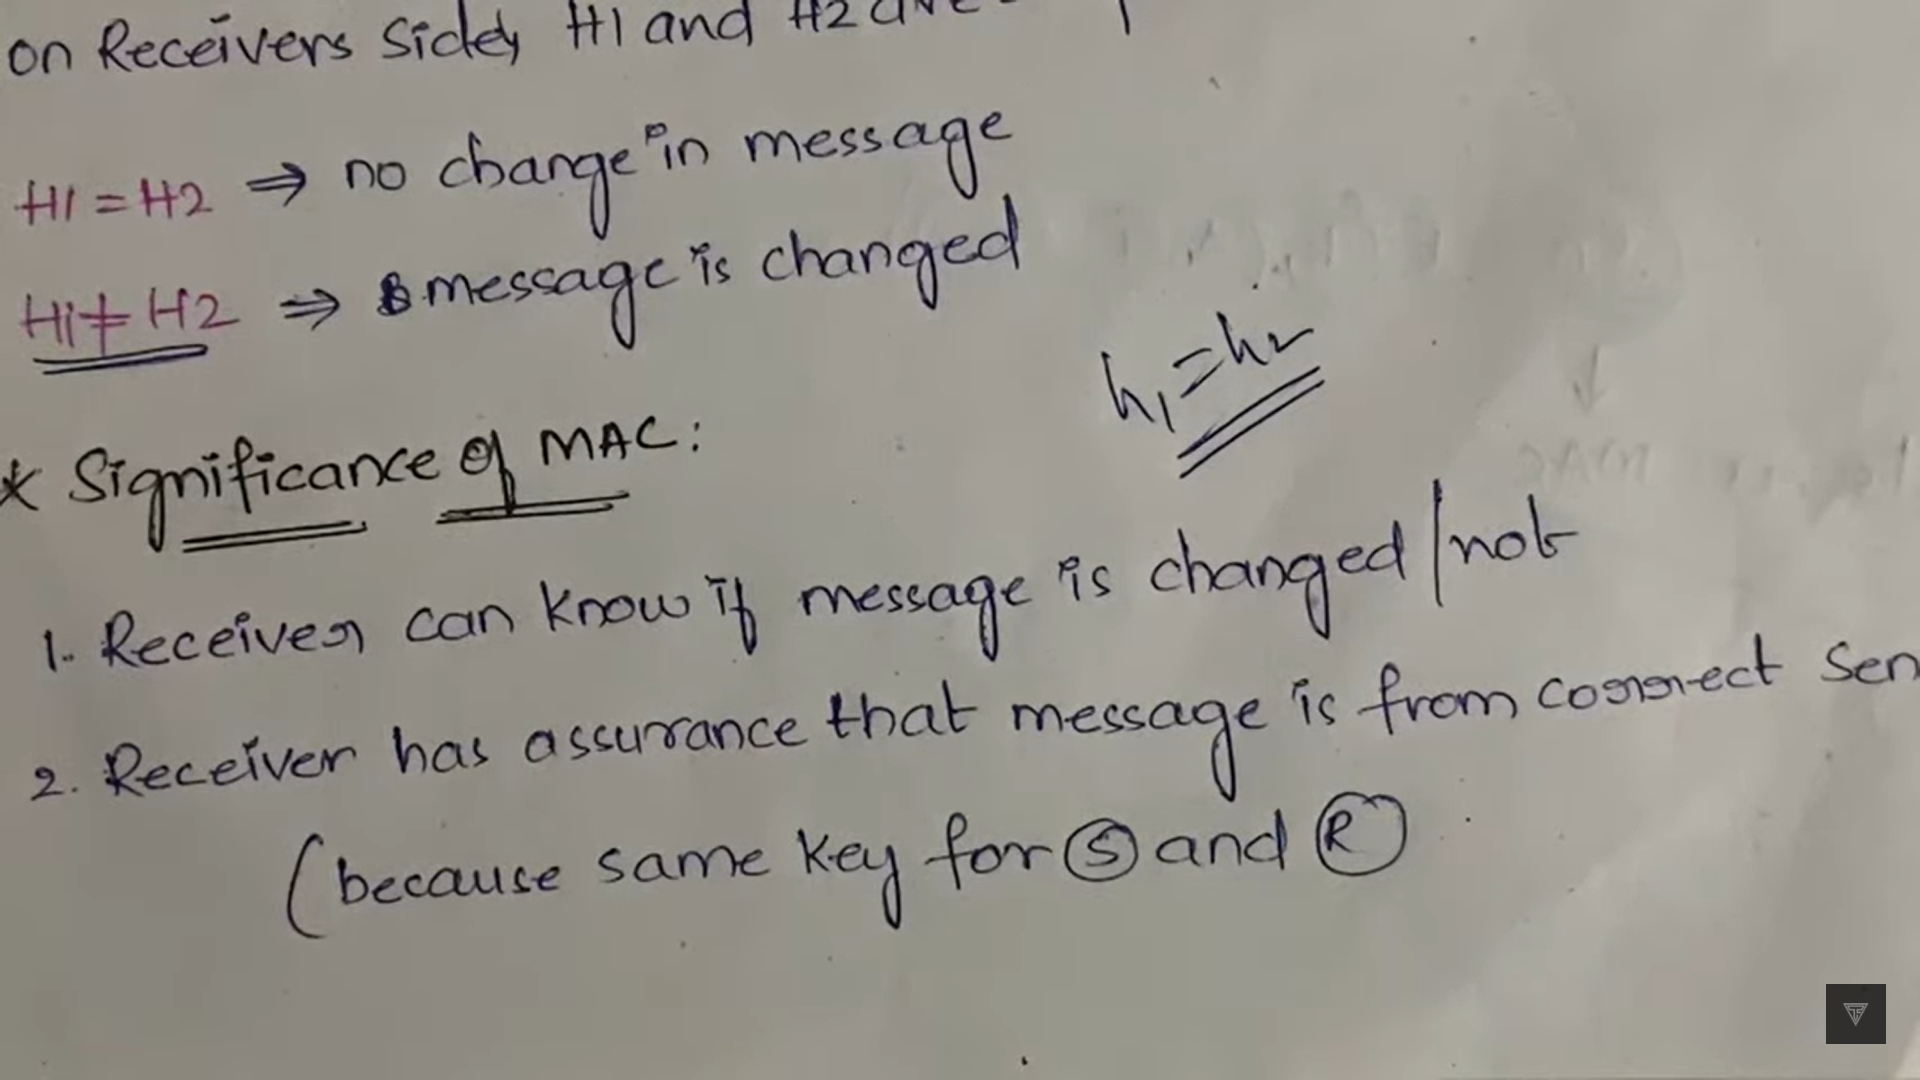 on Receivers side, H1 and H2 are
H1 = H2 ⇒ no change in message
H1 ≠ H2 ⇒ message is changed
h1 = h2
* Significance of MAC:
1. Receiver can know if message is changed/not
2. Receiver has assurance that message is from correct Sen
(because same key for Ⓢ and Ⓡ